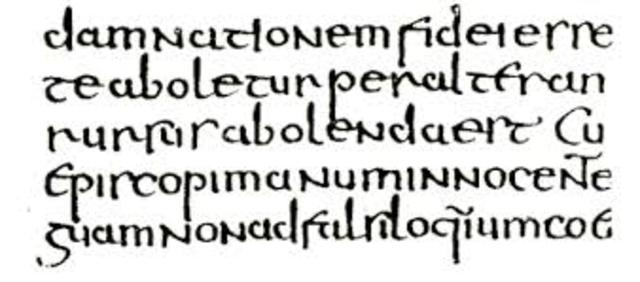 damnationem fidei esse
te aboletur per alteran
rursus abolenda est Cu
Episcopi manum innocen̄te
guam non ad falsiloq̃ium coe